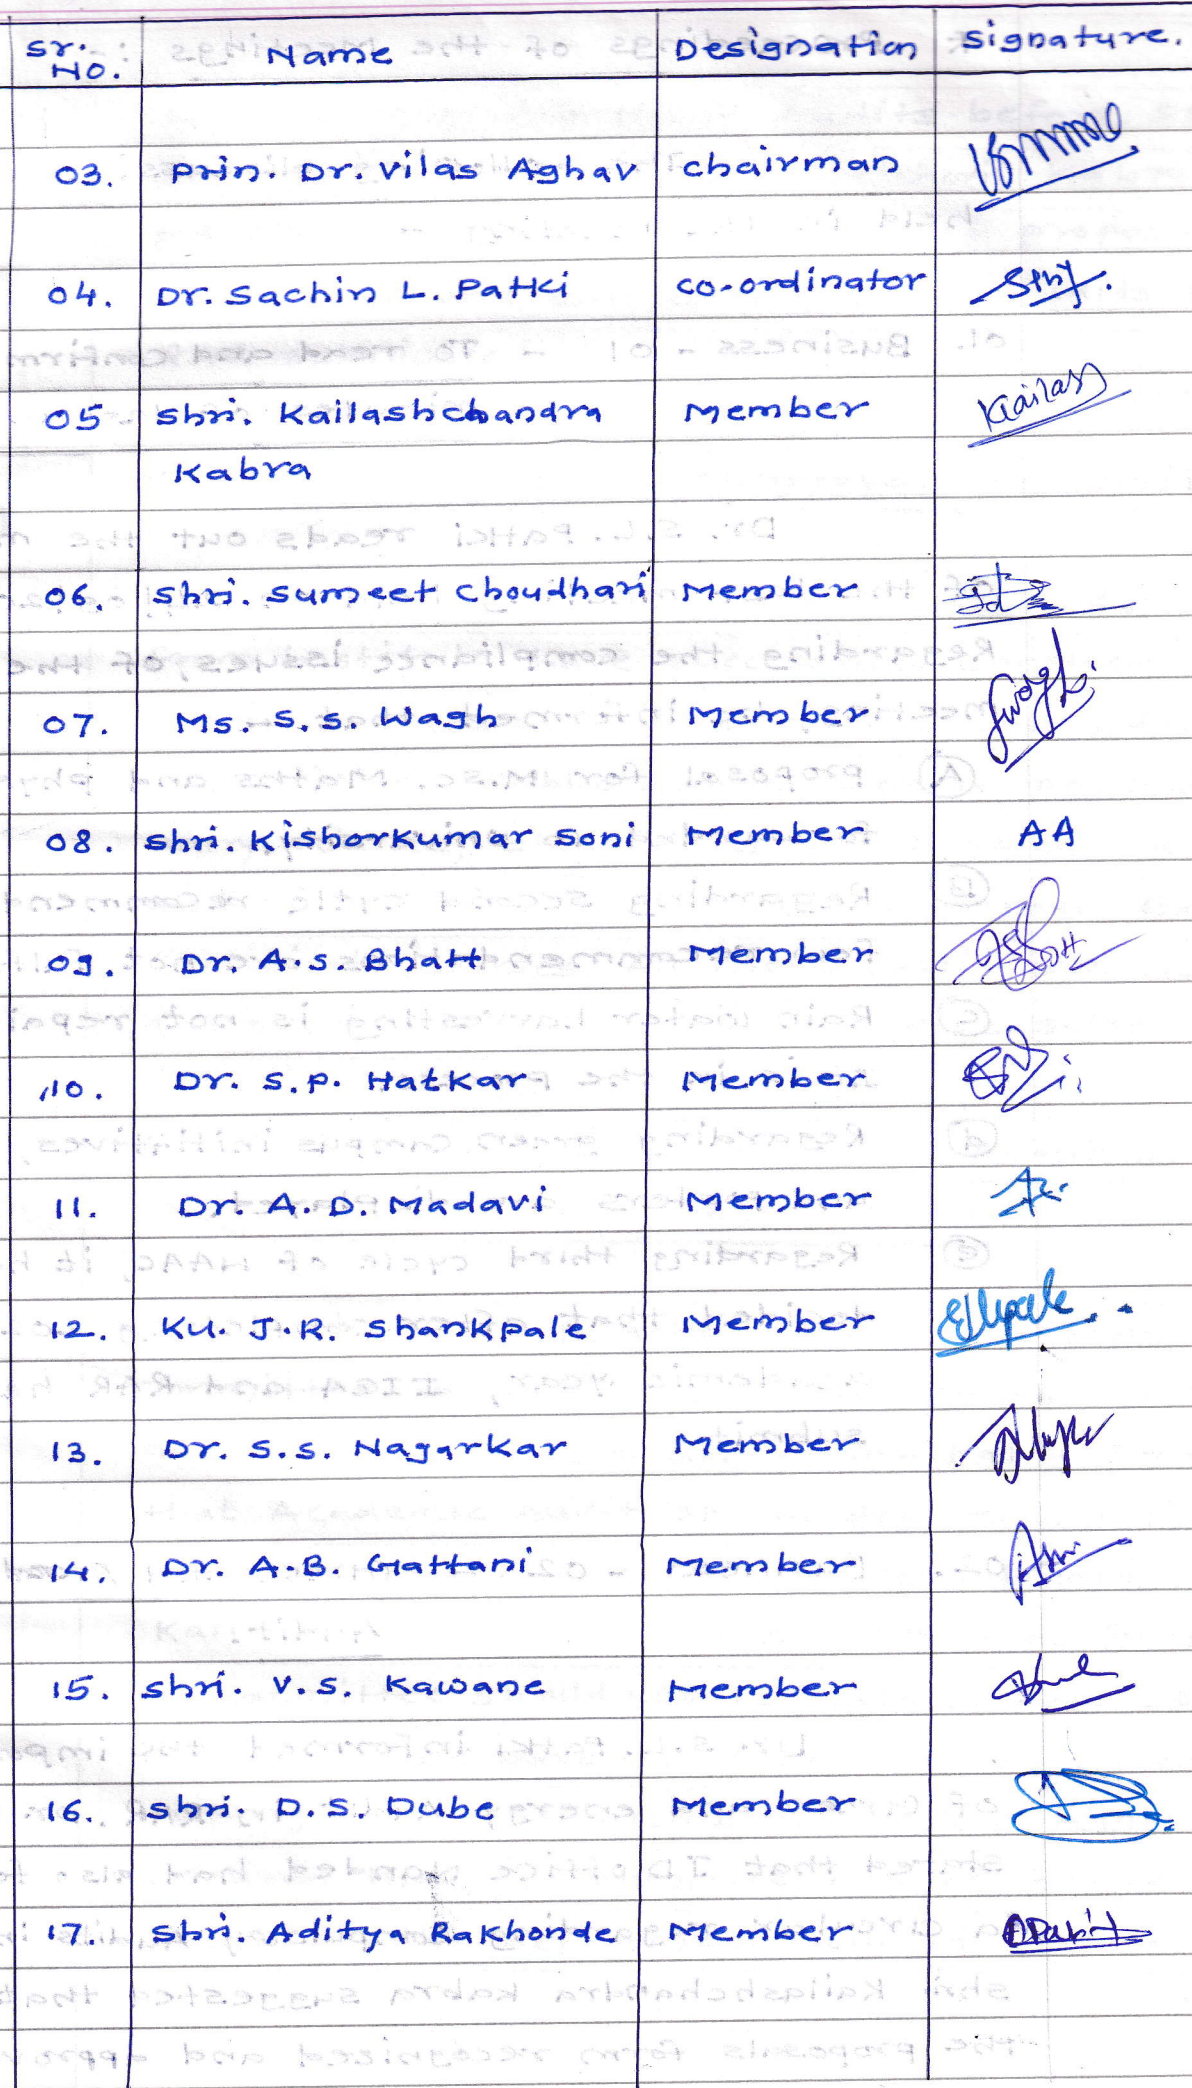 Sr. No. Name Designation Signature.
03. Prin. Dr. Vilas Aghav Chairman
04. Dr. Sachin L. Patki Co-ordinator
05 Shri. Kailashchandra Member Kailash
Kabra
06. Shri. Sumeet Choudhari Member
07. Ms. S. S. Wagh Member
08. Shri. Kishorkumar Soni Member AA
09. Dr. A. S. Bhatt Member
10. Dr. S. P. Hatkar Member
11. Dr. A. D. Madavi Member
12. Ku. J. R. Shankpale Member
13. Dr. S. S. Nagarkar Member
14. Dr. A. B. Gattani Member
15. Shri. V. S. Kawane Member
16. Shri. D. S. Dube Member
17. Shri. Aditya Rakhonde Member